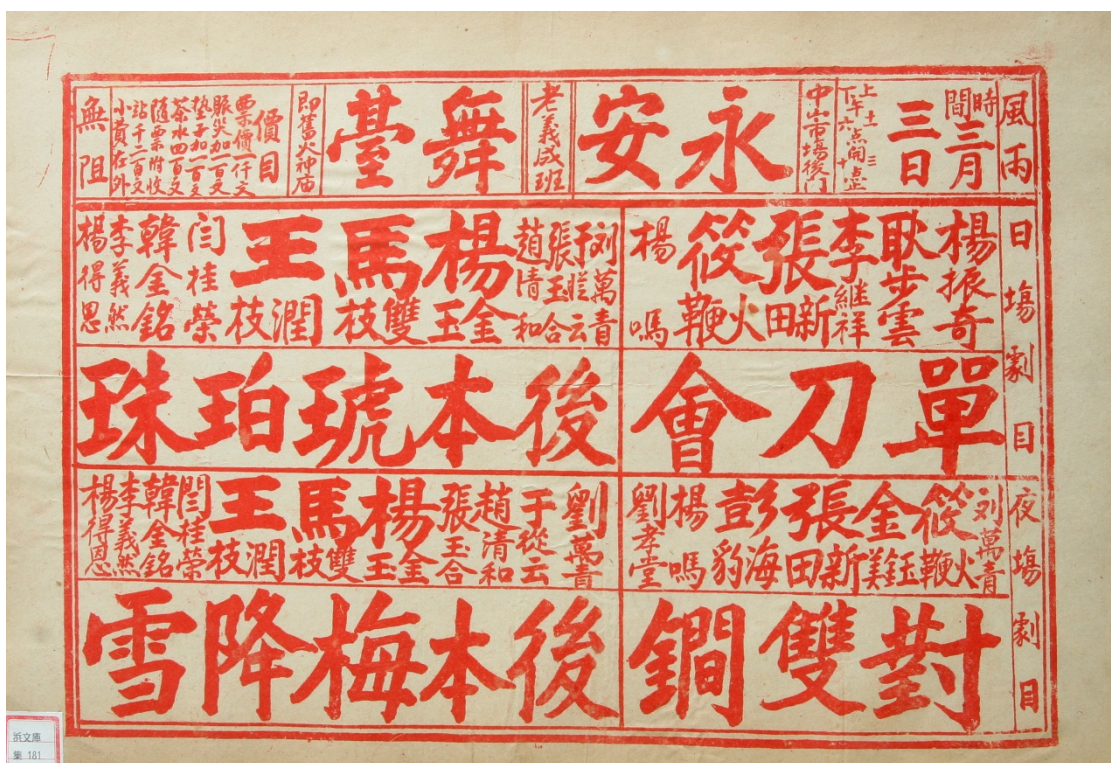 風雨
無阻
時間 三月三日
上午十一点
下午六点開場
中山市場後門
永安舞臺
老義成班
即舊火神庙
價目
票價一仟文
脹尖加一百文
垫子加一百文
茶水四百文
隨票附收
站千二百文
小費在外
日場劇目
楊振奇
耿步雲
李繼祥
張新田
筱火鞭
楊鳴
刘萬青
于㳂云
張玉合
趙清和
楊金玉
馬雙枝
王潤枝
闫桂榮
韓金銘
李義然
楊得恩
單刀會
後本琥珀珠
夜場劇目
刘萬青
筱火鞭
金鈺美
張新田
彭海豹
楊鳴
劉孝堂
劉萬青
于從云
趙清和
張玉合
楊金玉
馬雙枝
王潤枝
閆桂榮
韓金銘
李義然
楊得恩
對雙鐧
後本梅降雪
浜文庫
集 181